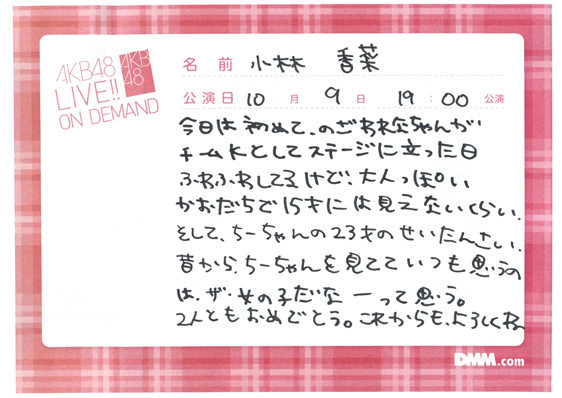 AKB48
LIVE!!
ON DEMAND
AKB
48
名前 小林 香菜
公演日 10月 9日 19:00 公演
今日は初めて、のざわれなちゃんが
チームKとしてステージに立った日
ふわふわしてるけど、大人っぽい
かおだちで15才には見えないくらい.
そして、ちーちゃんの23才のせいたんさい.
昔から、ちーちゃんを見てていつも思うの
は、ザ・女の子だなーって思う。
2人ともおめでとう。これからも、よろしくね
DMM.com